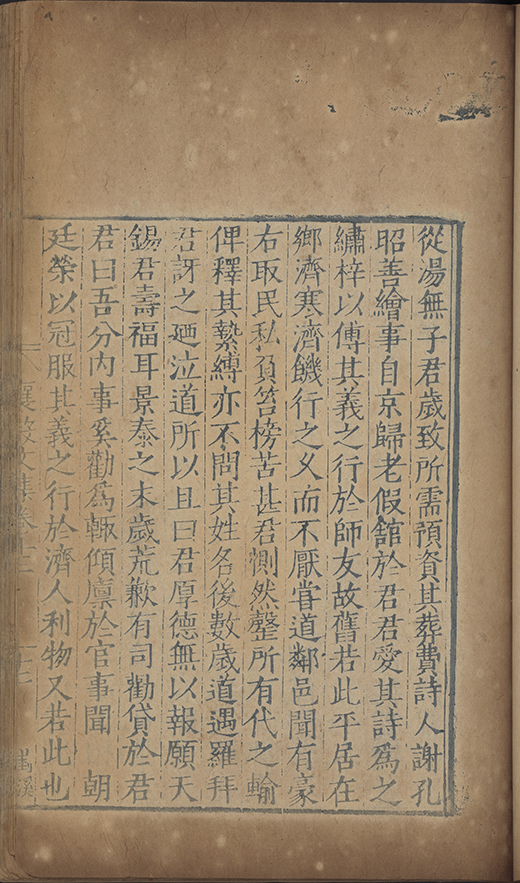 從湯無子君歲致所需預資其葬費詩人謝孔
昭善繪事自京歸老假舘於君君愛其詩爲之
繡梓以傳其義之行於師友故舊若此平居在
鄉濟寒濟饑行之乆而不厭甞道鄰邑聞有豪
右取民私負笞榜苦甚君惻然罄所有代之輸
俾釋其縶縛亦不問其姓名後數歲道遇羅拜
君訝之廼泣道所以且曰君厚德無以報願天
錫君壽福耳景泰之末歲荒歉有司勸貸於君
君曰吾分内事奚勸爲輙傾廪於官事聞 朝
廷榮以冠服其義之行於濟人利物又若此也
襄毅文集卷十二